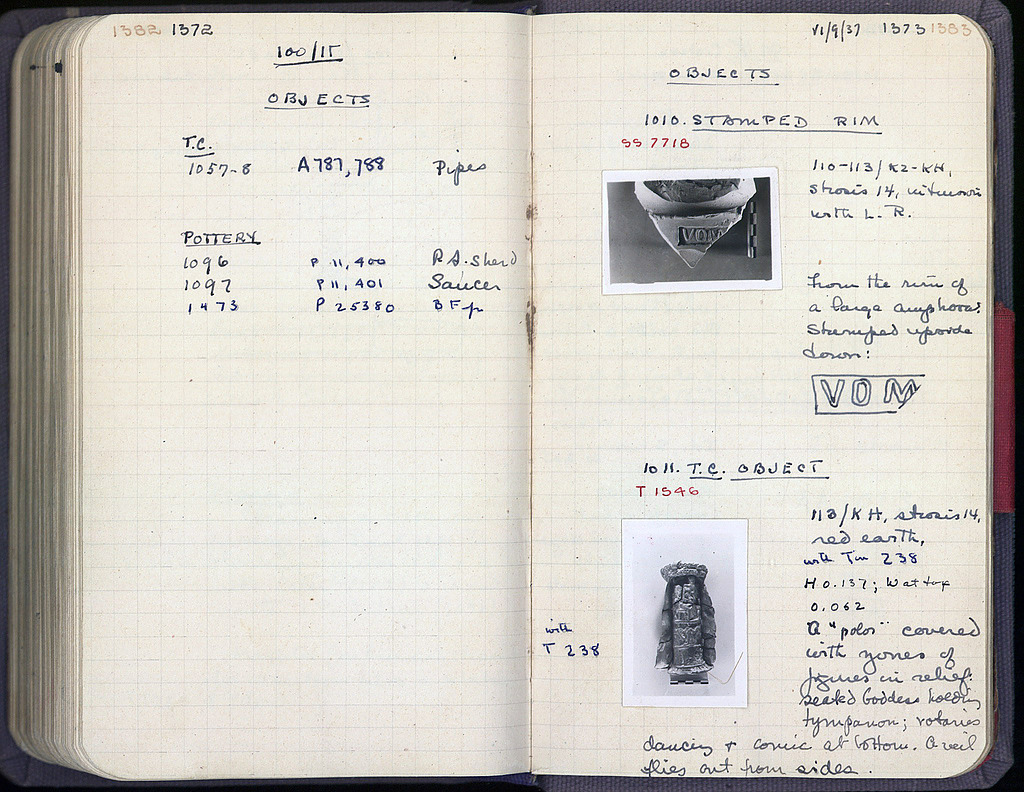 1382 1372
100/ΙΓ
OBJECTS
T.C.
1057-8 A 787, 788 Pipes
POTTERY
1096 P 11,400 R.A. Sherd
1097 P 11,401 Saucer
1473 P 25380 B F fr
VI/9/37 1373 1383
OBJECTS
1010. STAMPED RIM
SS 7718
110-113/KZ-KH,
strosis 14,
with L. R.
VOM
From the rim of
a large amphora?
Stamped upside
down:
VOM
1011. T.C. OBJECT
T 1546
113/KH, strosis 14,
red earth,
with Tm 238
H 0.137; W at top
0.062
A "polos" covered
with zones of
figures in relief:
seated Goddess holding
tympanon; votaries
dancing + comic at bottom. A veil
flies out from sides.
with
T 238